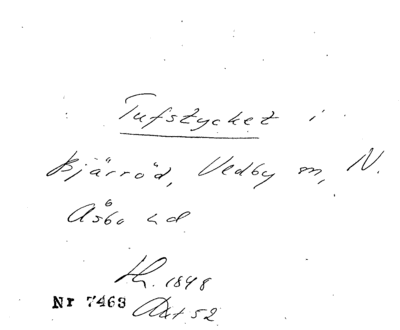 Tufstycket i
Bjärröd, Vedby sn, N.
Åsbo hd
Th. 1848
Nr 7463 Akt 52